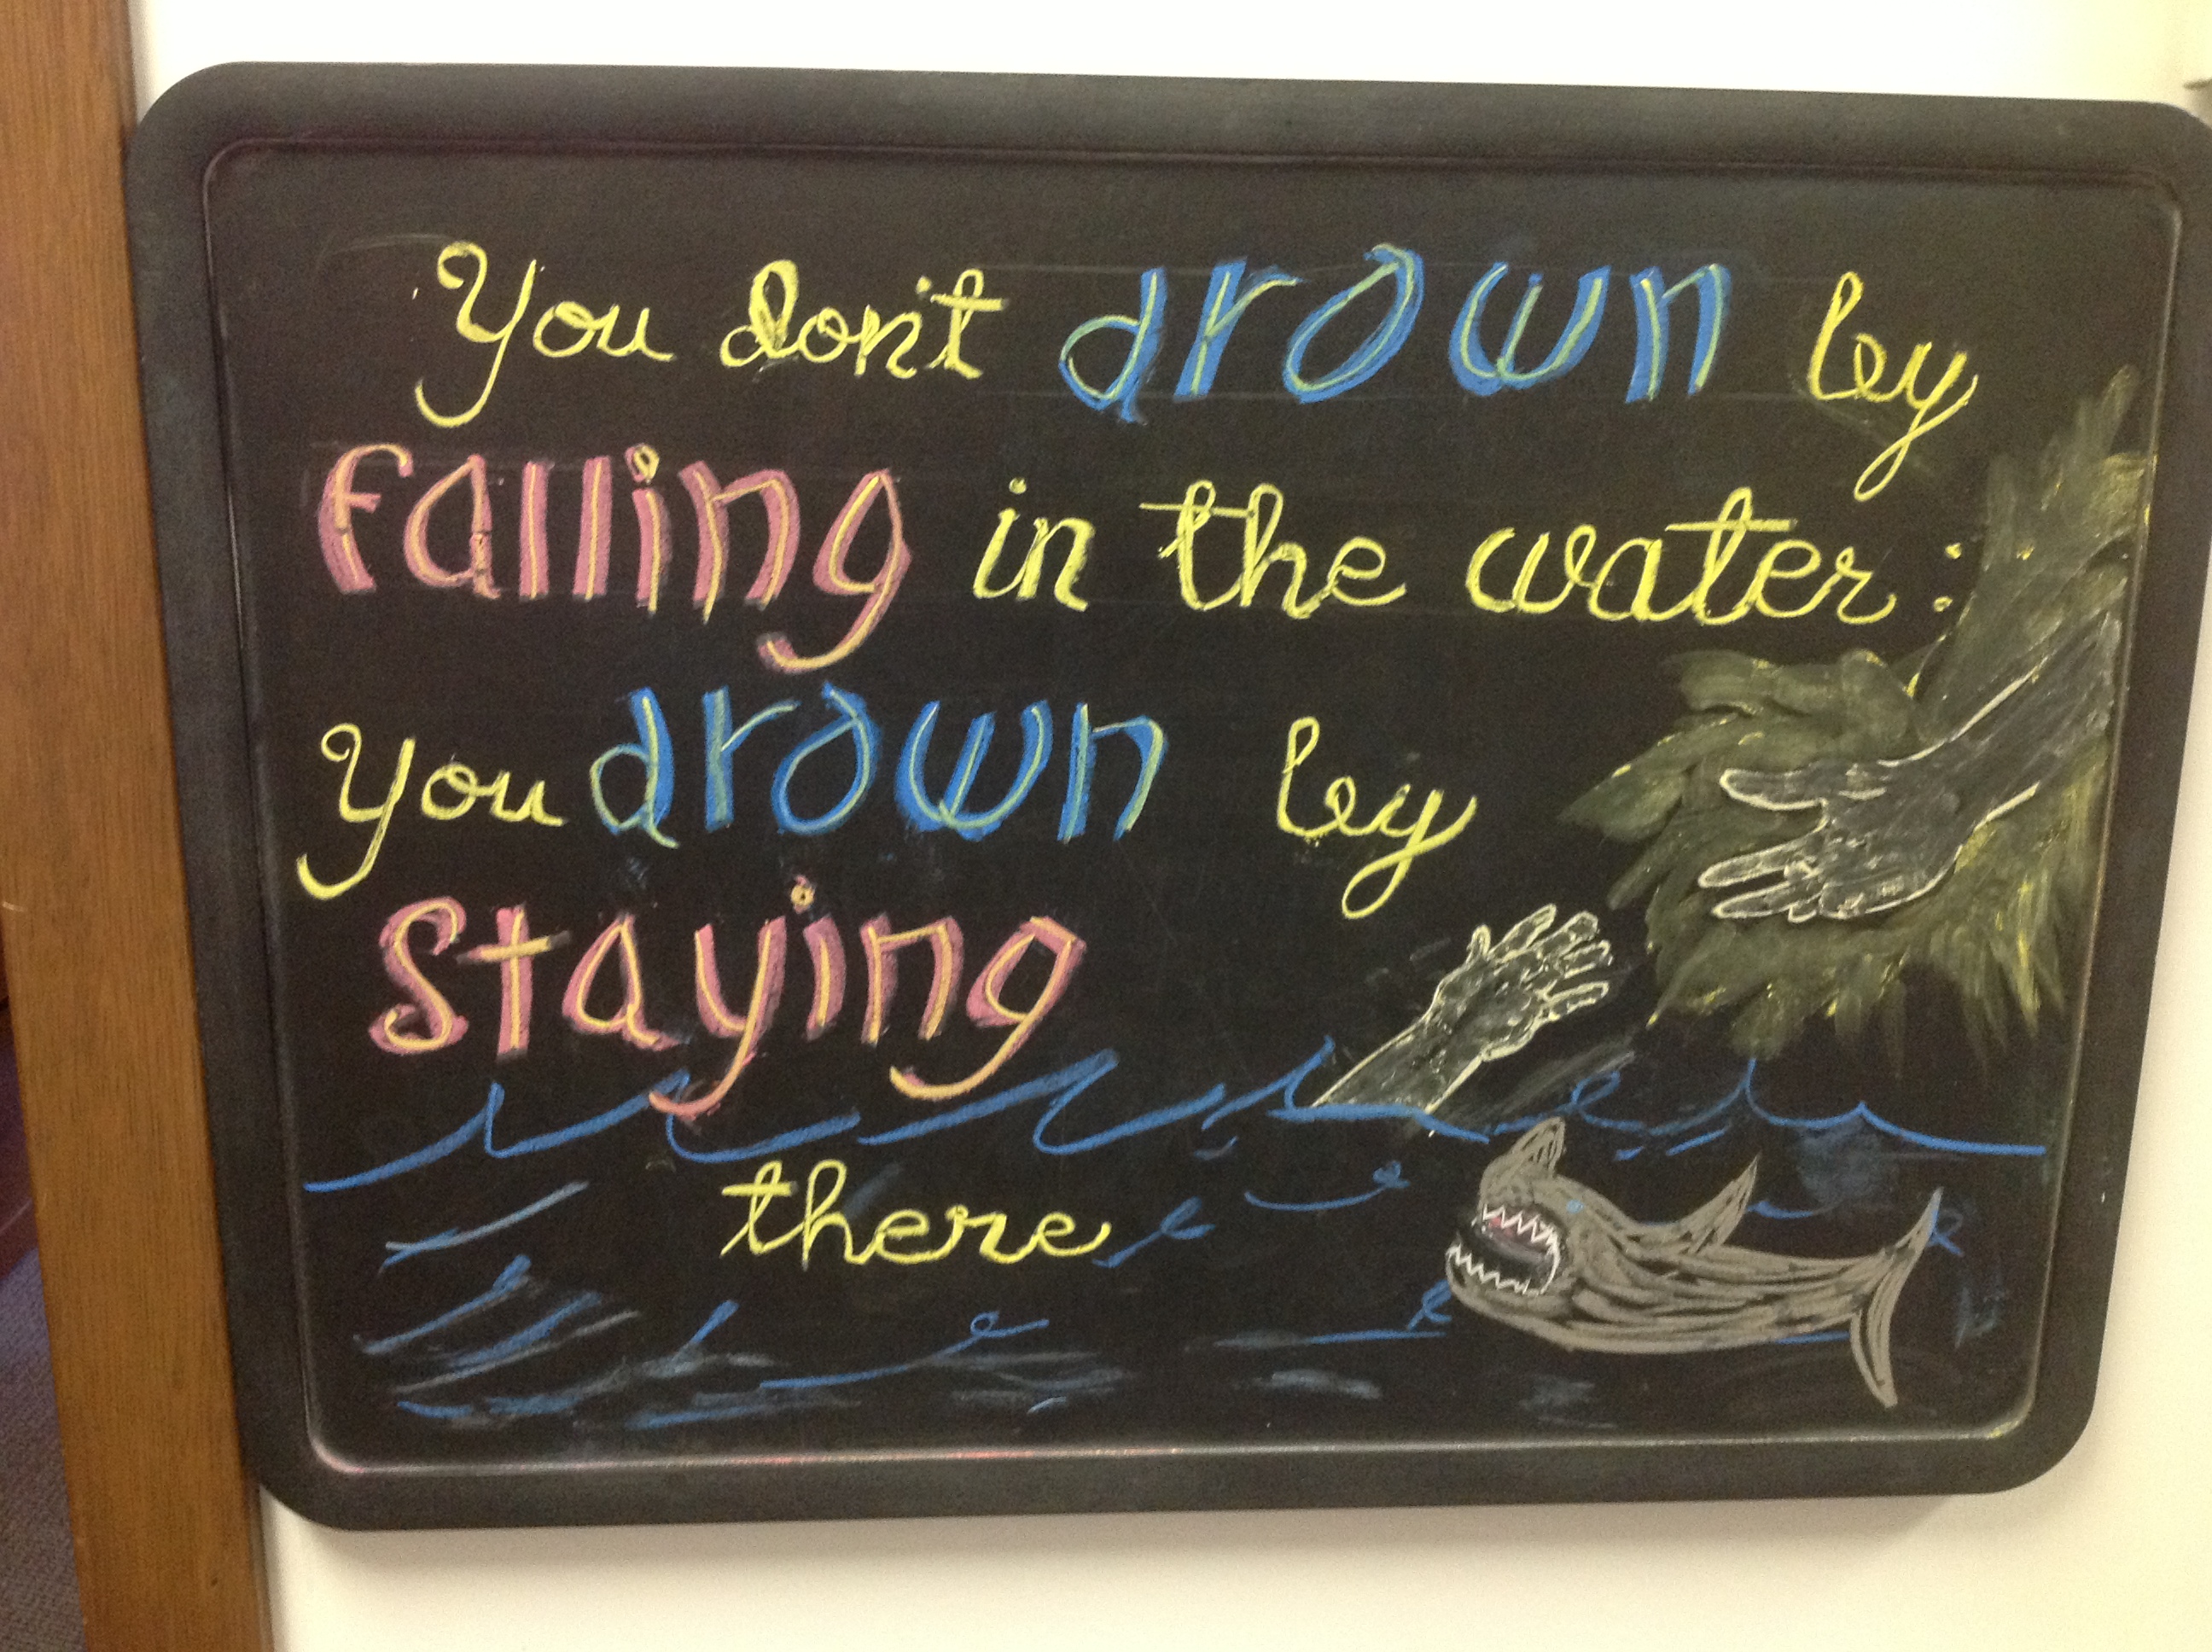 You don't drown by
falling in the water:
you drown by
staying
there